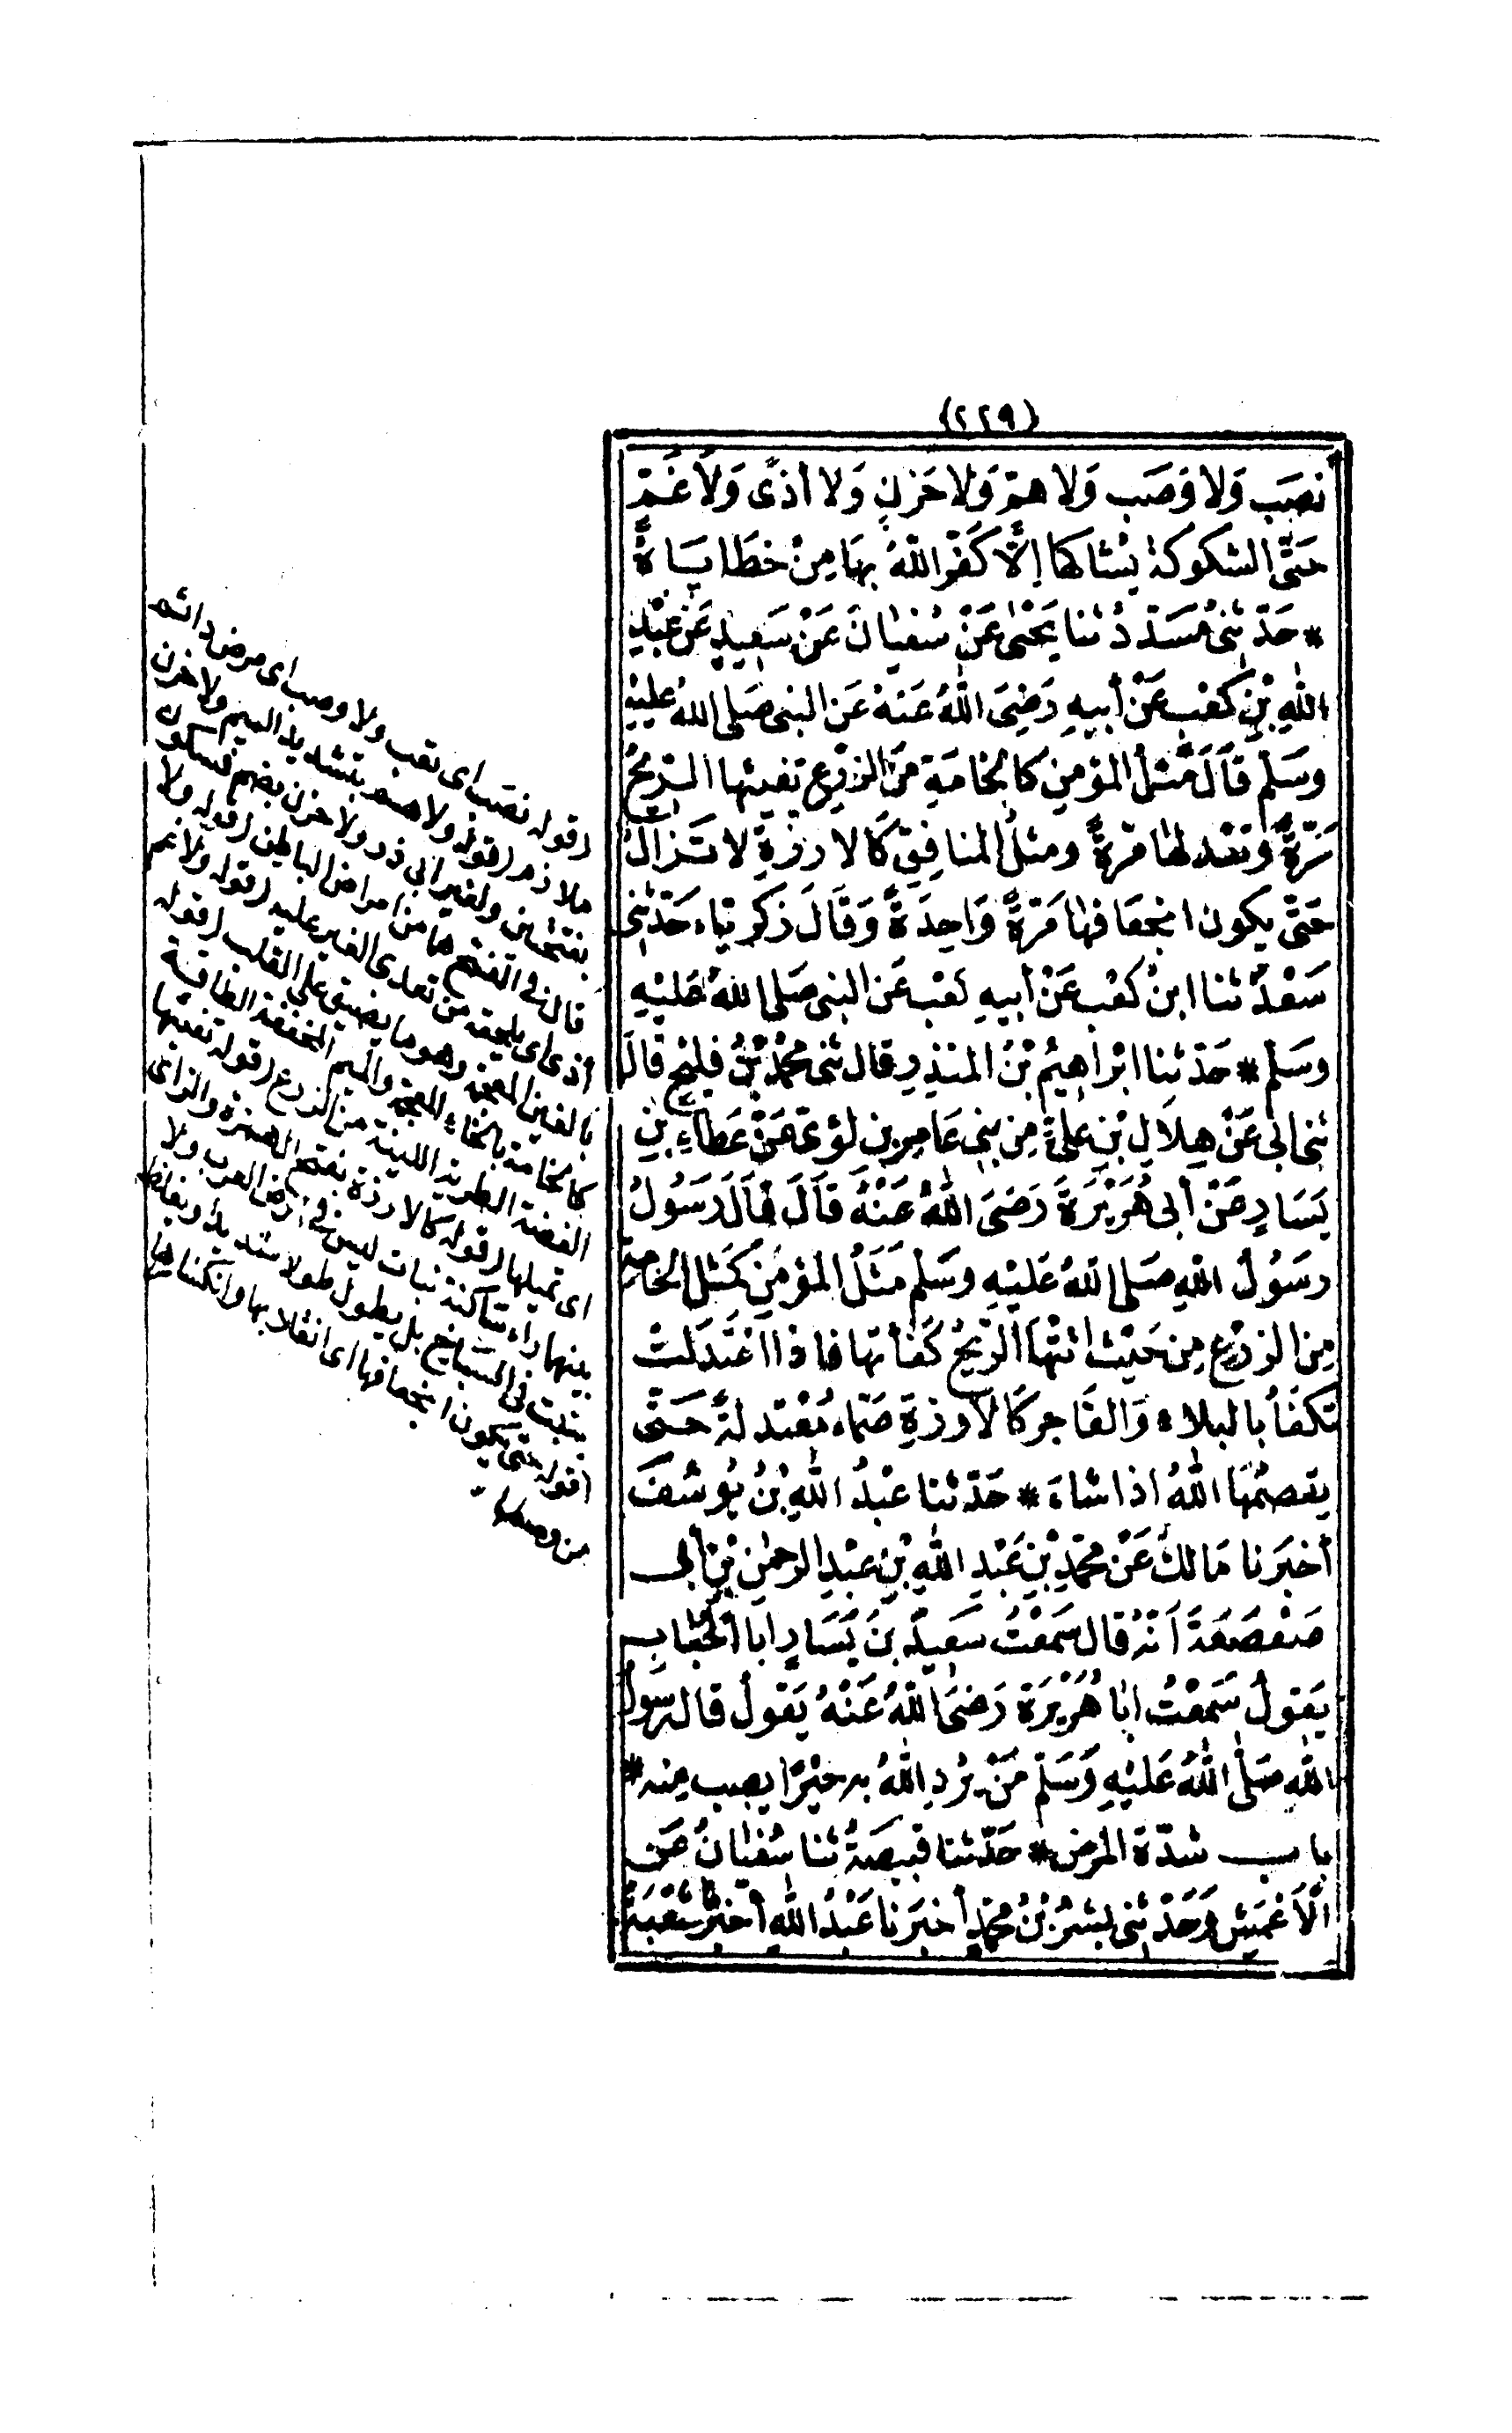 (٢٢٩)
نصَب وَلا وَصَب وَلا همّ وَلا حَزنٍ وَلا أذًى وَلَا غَمّ
حَتَّى الشوكة يُشاكها إلَّا كَفّرَ اللّٰهُ بهَا مِنْ خطَايَاهُ
* حَدّثنِى مُسَدّد ثنا يَحْيٰى عَنْ سُفيَانَ عَنْ سَعِيدٍ عَنْ عَبْدِ
اللّٰهِ بْنِ كَعْب عَنْ أبيهِ رَضِىَ اللّٰهُ عَنهُ عَن النبى صَلى اللهُ عليْهِ
وسَلم قاَلَ مَثلُ المؤمِن كالخامَةِ مِنَ الزرْعِ تفيئها الرّيحُ
مَرّةً وَتعْدلها مَرّةً ومثلُ المنافِقِ كَالارزةِ لا تزَالُ
حَتّى يكون انجعَافهَا مَرّةً وَاحِدَةً وَقَالَ زكريّاء حَدّثنِى
سَعْدٌ ثنا ابنُ كعْب عَنْ أبيهِ كعْب عَن النبى صَلى اللهُ عَليْهِ
وسَلم * حَدّثنا ابْرَاهِيمُ بْنُ المنذِرِ قال ثنى محمّدُ بْنُ فليْح قالَ
ثنى أبى عَنْ هِلَالِ بْنِ عَلىّ مِن بنى عَامِرِ بن لؤىّ عَنْ عَطاءِ بنِ
يَسَارٍ عَنْ أبى هُرَيْرَةَ رَضىَ اللّٰهُ عَنْهُ قاَلَ قالَ رَسُولُ
رسَوُلُ اللّٰهِ صَلى اللّٰهُ عَليْهِ وسَلم مَثَلُ المؤمِنِ كَمَثل الخامةِ
مِنَ الزرْع مِن حَيْث أتتْهَا الرّيحُ كَفَأتها فاذا اعْتَدَلَتْ
تكَفأُ بالبلاء وَالفَاجر كَالأرزةِ صَمّاء مُعْتدلةً حَتّى
يقصمُهَا اللّٰهُ اذا شاءَ * حَدّثنا عَبْدُ اللّٰهِ بْنُ يُوسُفَ
أخبَرنا مَالكٌ عَنْ محمّدِ بْنِ عَبْدِ اللّٰهِ بْنِ عَبْدِ الرحمٰن بْنِ أبى
صَعْصَعَةَ أنّهُ قال سَمعْتُ سَعِيدَ بنَ يَسَارٍ أبا الحُبَاب
يَقولُ سَمعْتُ أبا هُرَيْرَة رَضىَ اللّٰهُ عَنْهُ يَقولُ قال رسَولُ
اللّٰهِ صَلّٰى اللّٰهُ عَليْهِ وَسَلّم مَنْ يُرِدِ اللّٰهُ به خيْرًا يصِب مِنه *
باب شدّة المرَض * حَدّثنا قبيصَةُ ثنا سُفيَانُ عَن
الأعْمَشِ وَحَدّثنِى بشرُ بْنُ محمّدٍ أخبَرنا عَبْدُ اللّٰهِ أخبَرنا شعْبَةُ
(قوله نصَب) اى تعب ولا وصب اى مرض دائم
ملازم (قوله ولا هم) بتشديد الميم ولا حزن
بفتحتين ولغير ابى ذر ولا حزن بضم فسكون
قال فى الفتح هما من امراض الباطن (قوله ولا
أذى) اى يلحقه من تعدى الغير عليه (قوله ولا غم)
بالغين المعجمة وهو ما يضيق على القلب (قوله
كالخامة) بالخاء المعجمة والميم المخففة الطاقة
الغضة الطرية اللينة من الزرع (قوله تفيئها)
اى تميلها (قوله كالارزة) بفتح الهمزة والزاى
بينهما راء ساكنة نبات ليس فى ارض العرب ولا
ينبت فى السباخ بل يطول طولا شديدا ويغلظ
(قوله حتى يكون انجعافها) اى انقلابها وانكسارها
من وسطها